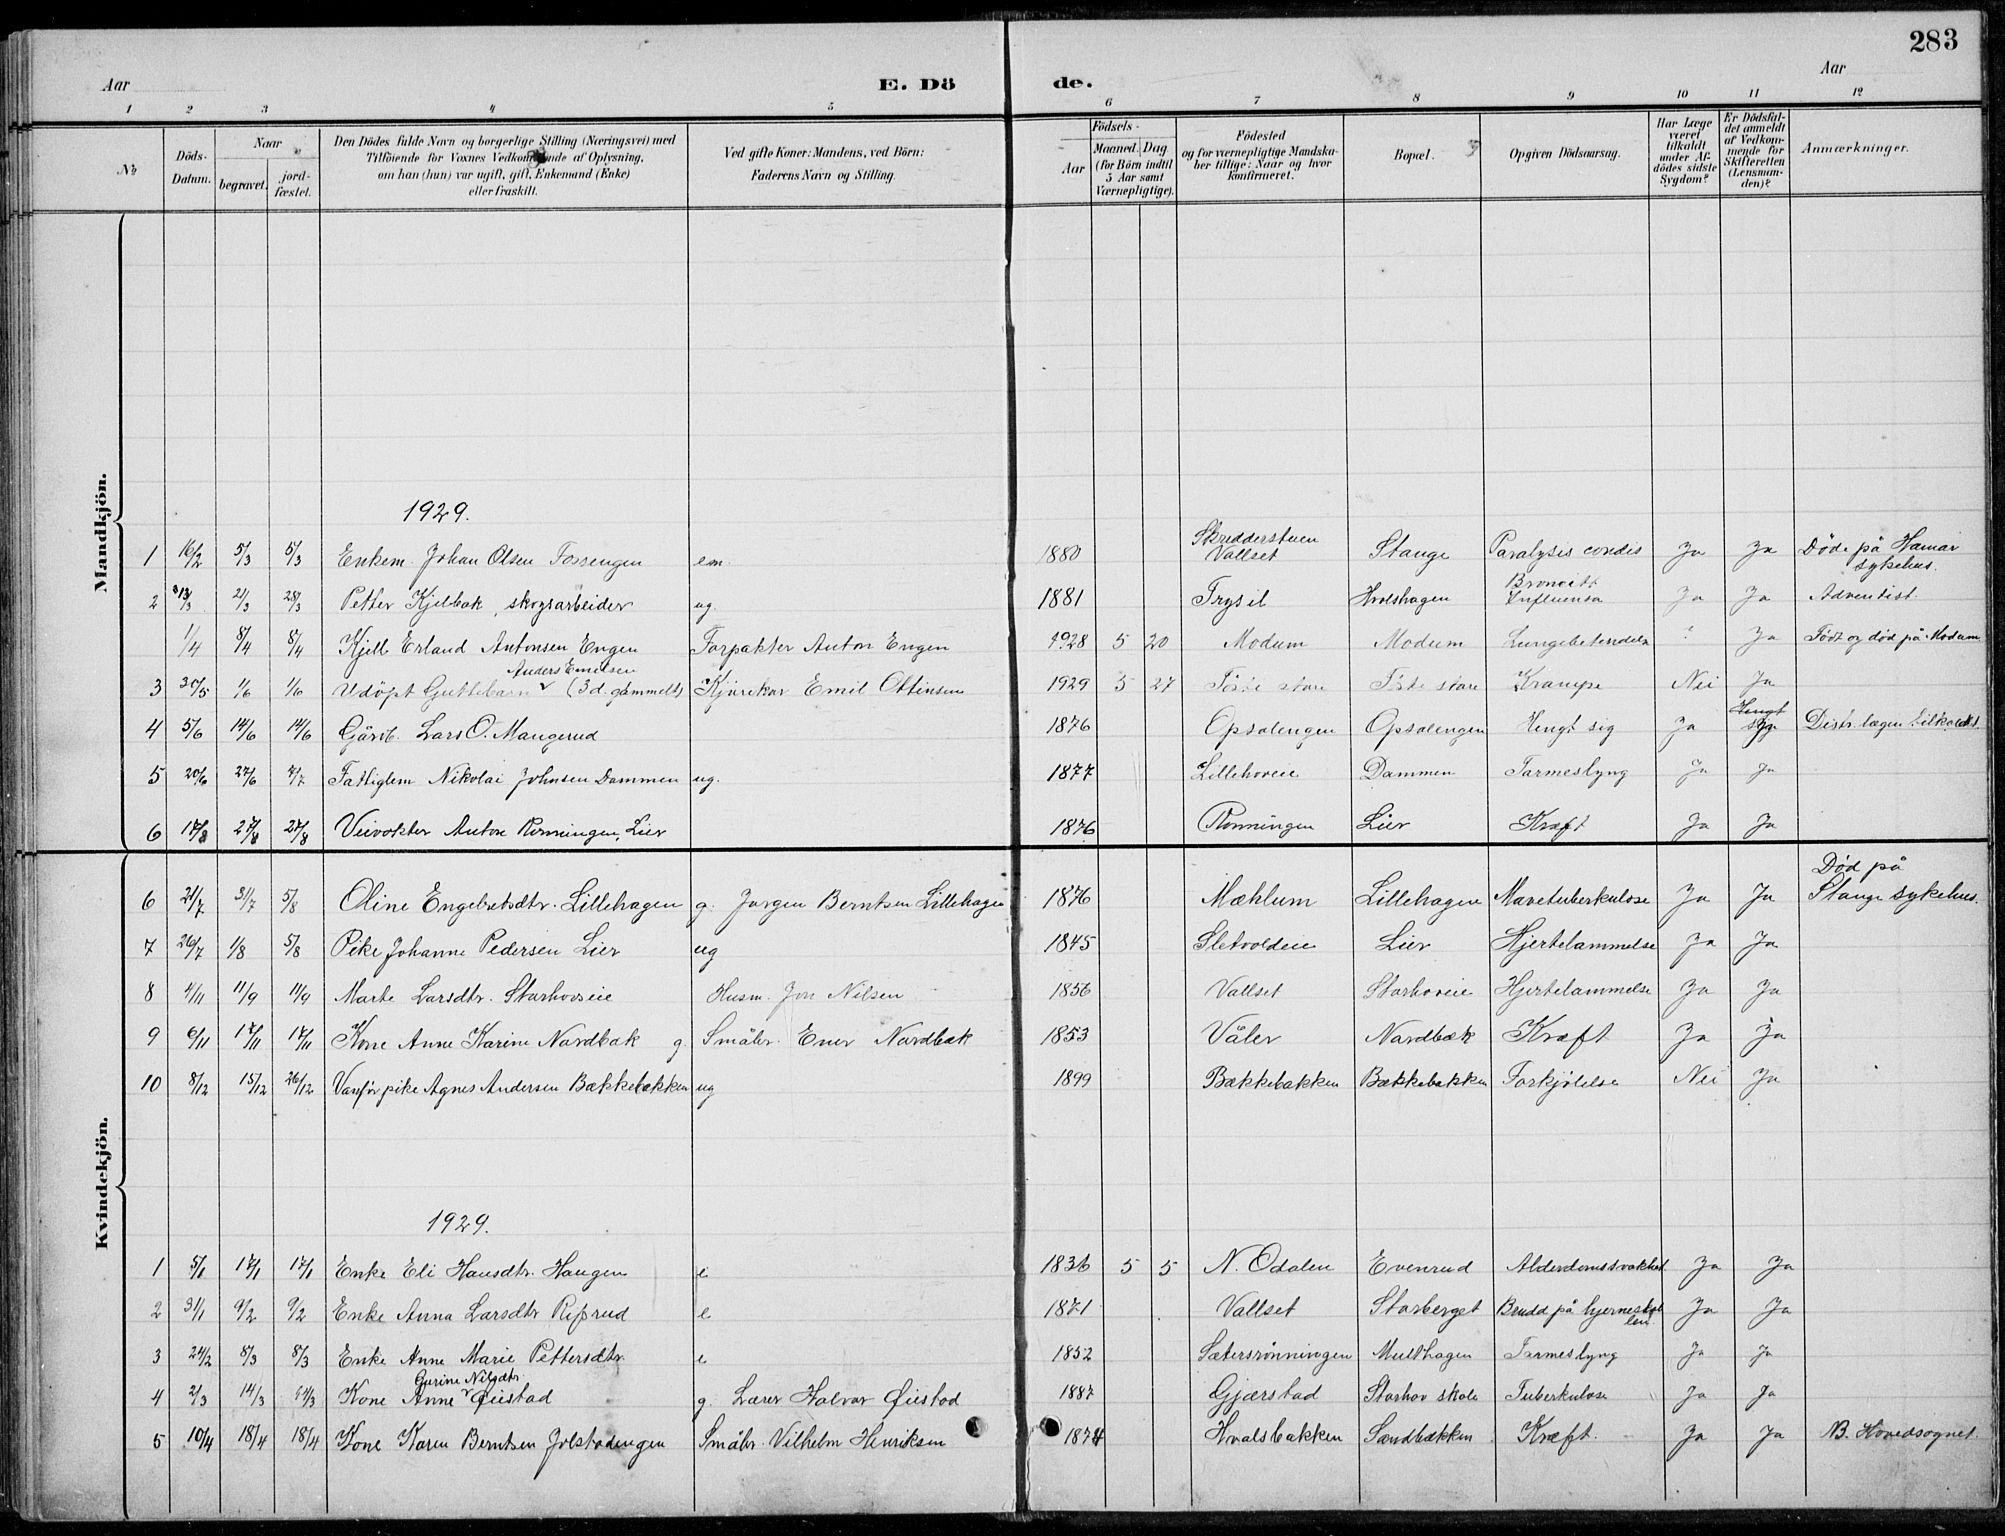 283
Aar
E. Dö
de.
Aar
1 2 3 4 5 6 7 8 9 10 11 12
No
Döds-Datum.
Naar
begravet.
jordfæstet.
Den Dödes fulde Navn og borgerlige Stilling (Næringsvei) med
Tilföiende for Voxnes Vedkommende af Oplysning,
om han (hun) var ugift, gift, Enkemand (Enke)
eller fraskilt.
Ved gifte Koner: Mandens, ved Börn:
Faderens Navn og Stilling.
Födsels-
Aar
Maaned. Dag
(for Börn indtil
5 Aar samt
Værnepligtige).
Födested
og for værnepligtige Mandska-
ber tillige: Naar og hvor
konfirmeret.
Bopæl.
Opgiven Dödsaarsag.
Har Læge
været
tilkaldt
under Af-
dödes sidste
Sygdom?
Er Dödsfal-
det anmeldt
af Vedkom-
mende for
Skifteretten
(Lensman-
den)?
Anmærkninger.
Mandkjön.
1929.
1 16/2 5/3 5/3 Enkem. Johan Olsen Fossengen em. 1880 Skredderstuen Vallset Stange Paralysis cordis Ja Ja Döde på Hamar sykehus.
2 13/3 21/3 28/3 Petter Kjelbak, skogsarbeider ug. 1881 Trysil Hvolshagen Broncitt Influensa Ja Ja Adventist.
1/4 8/4 8/4 Kjell Erland Antonsen Engen Forpakter Anton Engen 1928 5 20 Modum Modum Lungebetendelse ? Ja Født og død på Modum
Anders Emilsen
3 30/5 1/6 1/6 Udöpt Guttebarn (3 d. gammelt) Kjörekar Emil Ottinsen 1929 5 27 Krampe Nei Ja
4 5/6 14/6 14/6 Gårdb. Lars O. Mangerud 1876 Opsalengen Opsalengen Hengt sig Ja Hengt sig Distr. lægen tilkaldt.
5 20/6 27/6 4/7 Fattiglem Nikolai Johnsen Dammen ug. 1877 Lillehoveie Dammen Tarmeslyng Ja Ja
6 17/8 27/8 27/8 Veivokter Anton Rønningen, Lier 1876 Rønningen Lier Kræft Ja Ja
Kvindekjön.
6 21/7 31/7 5/8 Oline Engebretsdtr. Lillehagen g. Jørgen Berntsen Lillehagen 1876 Mæhlum Lillehagen Mavetuberkulose Ja Ja Død på Stange sykehus.
7 26/7 1/8 5/8 Pike Johanne Pedersen Lier ug 1845 Sletvoldeie Lier Hjertelammelse Ja Ja
8 4/11 11/9 11/9 Marte Larsdtr. Storhoveie Husm. Jon Nilsen 1856 Vallset Storhoveie Hjertelammelse Ja Ja
9 6/11 17/11 17/11 Kone Anne Karine Nordbæk g. Småbr. Ener Nordbæk 1853 Våler Nordbæk Kræft Ja Ja
10 8/12 15/12 26/12 Vanför pike Agnes Andersen Bækkebakken ug 1899 Bækkebakken Bækkebakken Forkjølelse Nei Ja
1929.
1 5/1 17/1 17/1 Enke Eli Hansdtr. Haugen e 1836 5 5 N. Odalen Evenrud Alderdomssvakhet Ja Ja
2 31/1 9/2 9/2 Enke Anna Larsdtr Risprud e 1871 Vallset Storberget Brudd på hjerneskolen Ja Ja
3 24/2 8/3 8/3 Enke Anne Marie Pettersdtr. e 1852 Sætersrønningen Multhagen Tarmeslyng Ja Ja
Gurine Nilsdtr
4 2/3 14/3 14/3 Kone Anne Øiestad g. Lærer Halvor Øiestad 1887 Gjærstad Storhov skole Tuberkulose Ja Ja
5 10/4 18/4 18/4 Kone Karen Berntsen Jolstadengen Småbr. Vilhelm Henriksen 1874 Hvalsbakken Sandbækken Kræft. Ja Ja B. Hovedsognet.